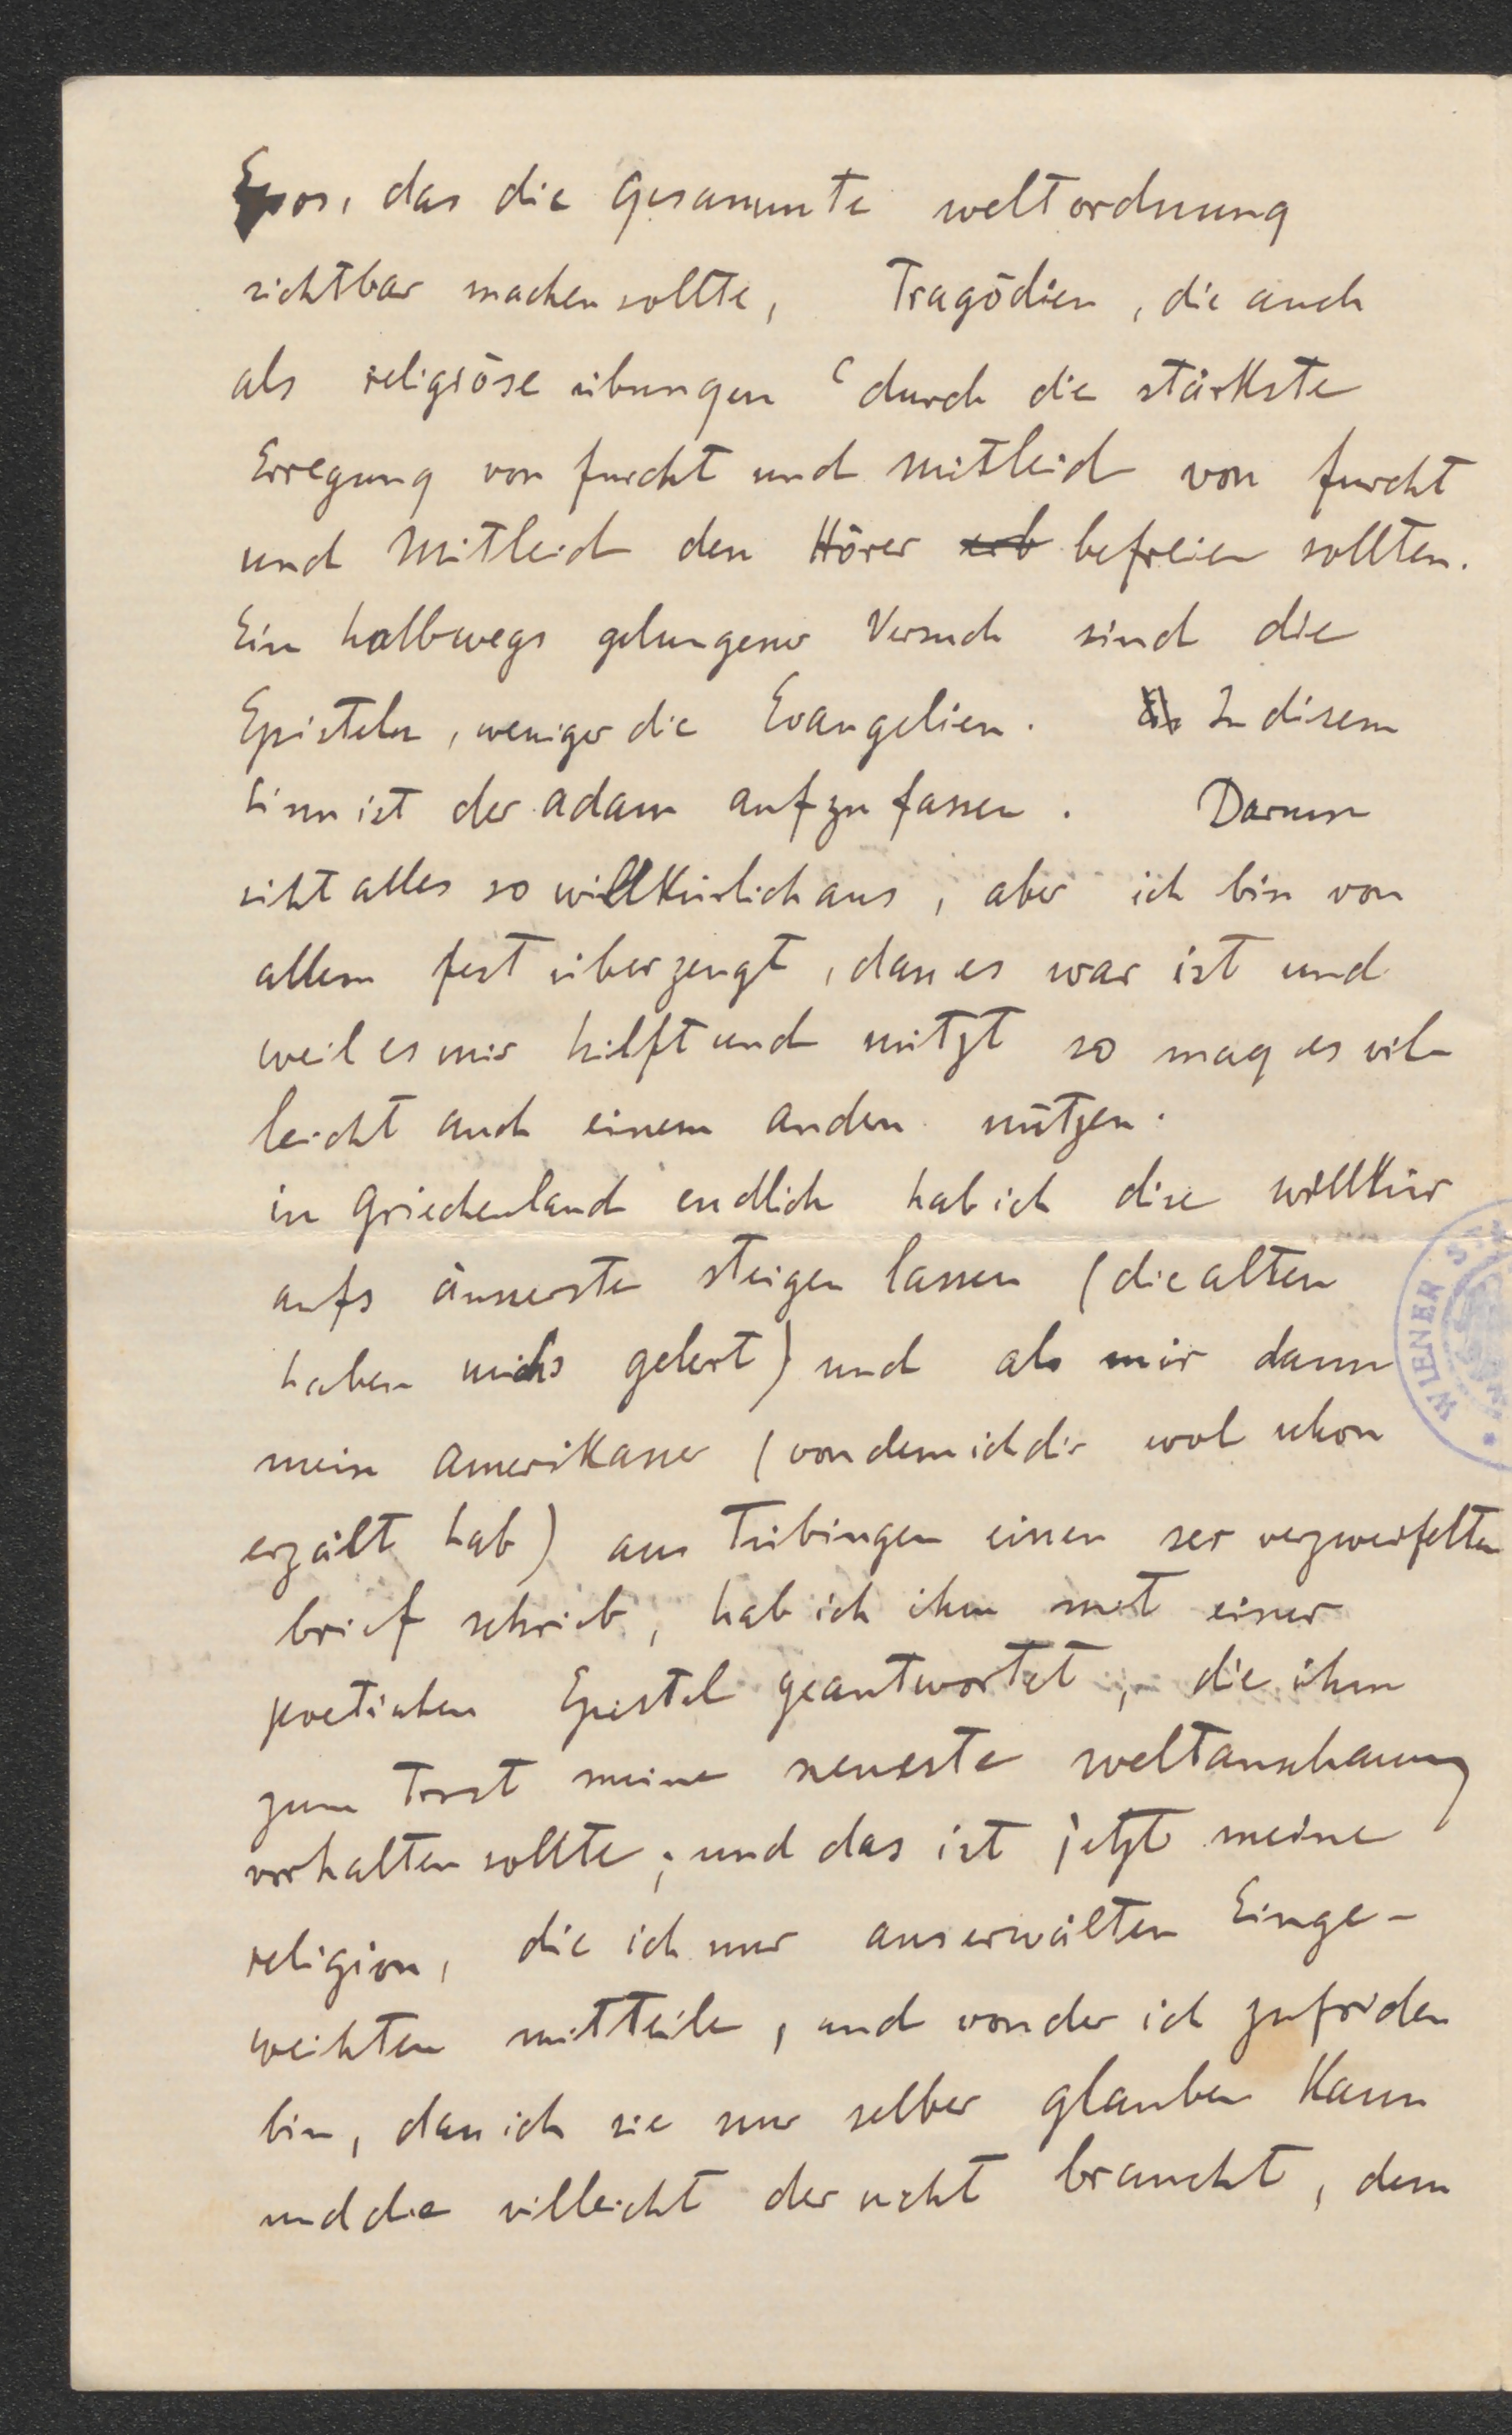 Epos, das die Gesammte weltordnung
sichtbar machen sollte, Tragödien, die auch
als religiöse übungen durch die stärkste
Erregung von furcht und Mitleid von furcht
und Mitleid den Hörer erb befreien sollten.
Ein halbwegs gelungener Versuch sind die
Episteln, weniger die Evangelien. In disem
Sinn ist der adam aufzufassen. Darum
siht alles so willkürlich aus, aber ich bin von
allem fest überzeugt, dass es war ist und
weil es mir hilft und nützt so mag es vil-
leicht auch einem andern nützen.
in Griechenland endlich hab ich dise willkür
aufs äusserste steigen lassen (die alten
haben michs gelert) und als mir dann
mein Amerikaner (von dem ich dir wol schon
erzält hab) aus Tübingen einen ser verzweifelten
brief schrieb, hab ich ihm mit einer
poetischen Epistel geantwortet, die ihm
zum Trost meine neueste weltanschauung
vorhalten sollte; und das ist jetzt meine
religion, die ich nur auserwälten Einge-
weihten mitteile, und von der ich zufriden
bin, dass ich sie nur selber glauben kann
und die villeicht der nicht braucht, dem
WIENER